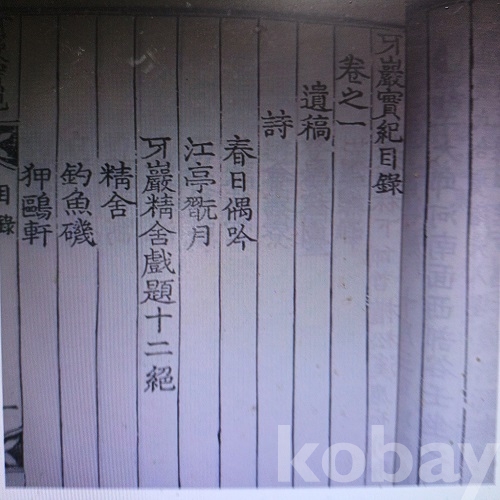 牙巖實紀目錄
卷之一
遺稿
詩
春日偶吟
江亭翫月
牙巖精舍戲題十二絕
精舍
釣魚磯
狎鷗軒
目錄
一
kobay